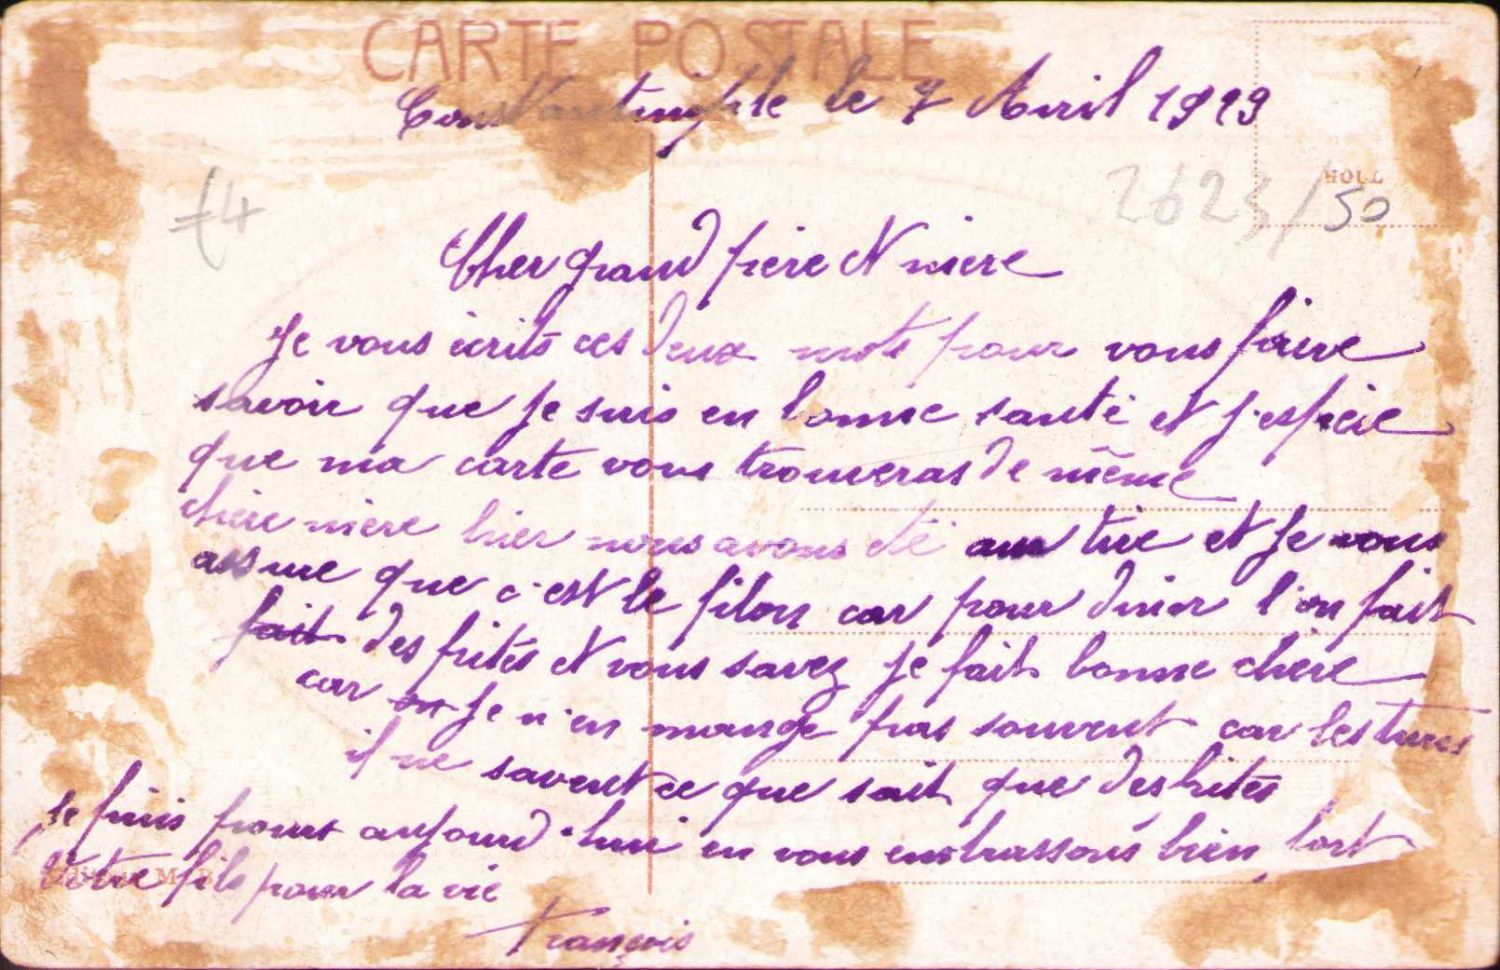 CARTE POSTALE
Constantinople le 7 Avril 1919
£4
2623/50
Cher grand père et mère
Je vous écrits ces deux mots pour vous faire
savoir que je suis en bonne santé et j'espère
que ma carte vous trouveras de même
chère mère hier nous avons été au tire et je vous
assure que c'est le filon car pour diner l'on fait
fait des frites et vous savez je fait bonne chère
car on je n'en mange pas souvent car les turcs
il ne savent ce que sait que des frites
je finis pour aujourd'hui en vous embrassons bien fort
Votre fils pour la vie
François